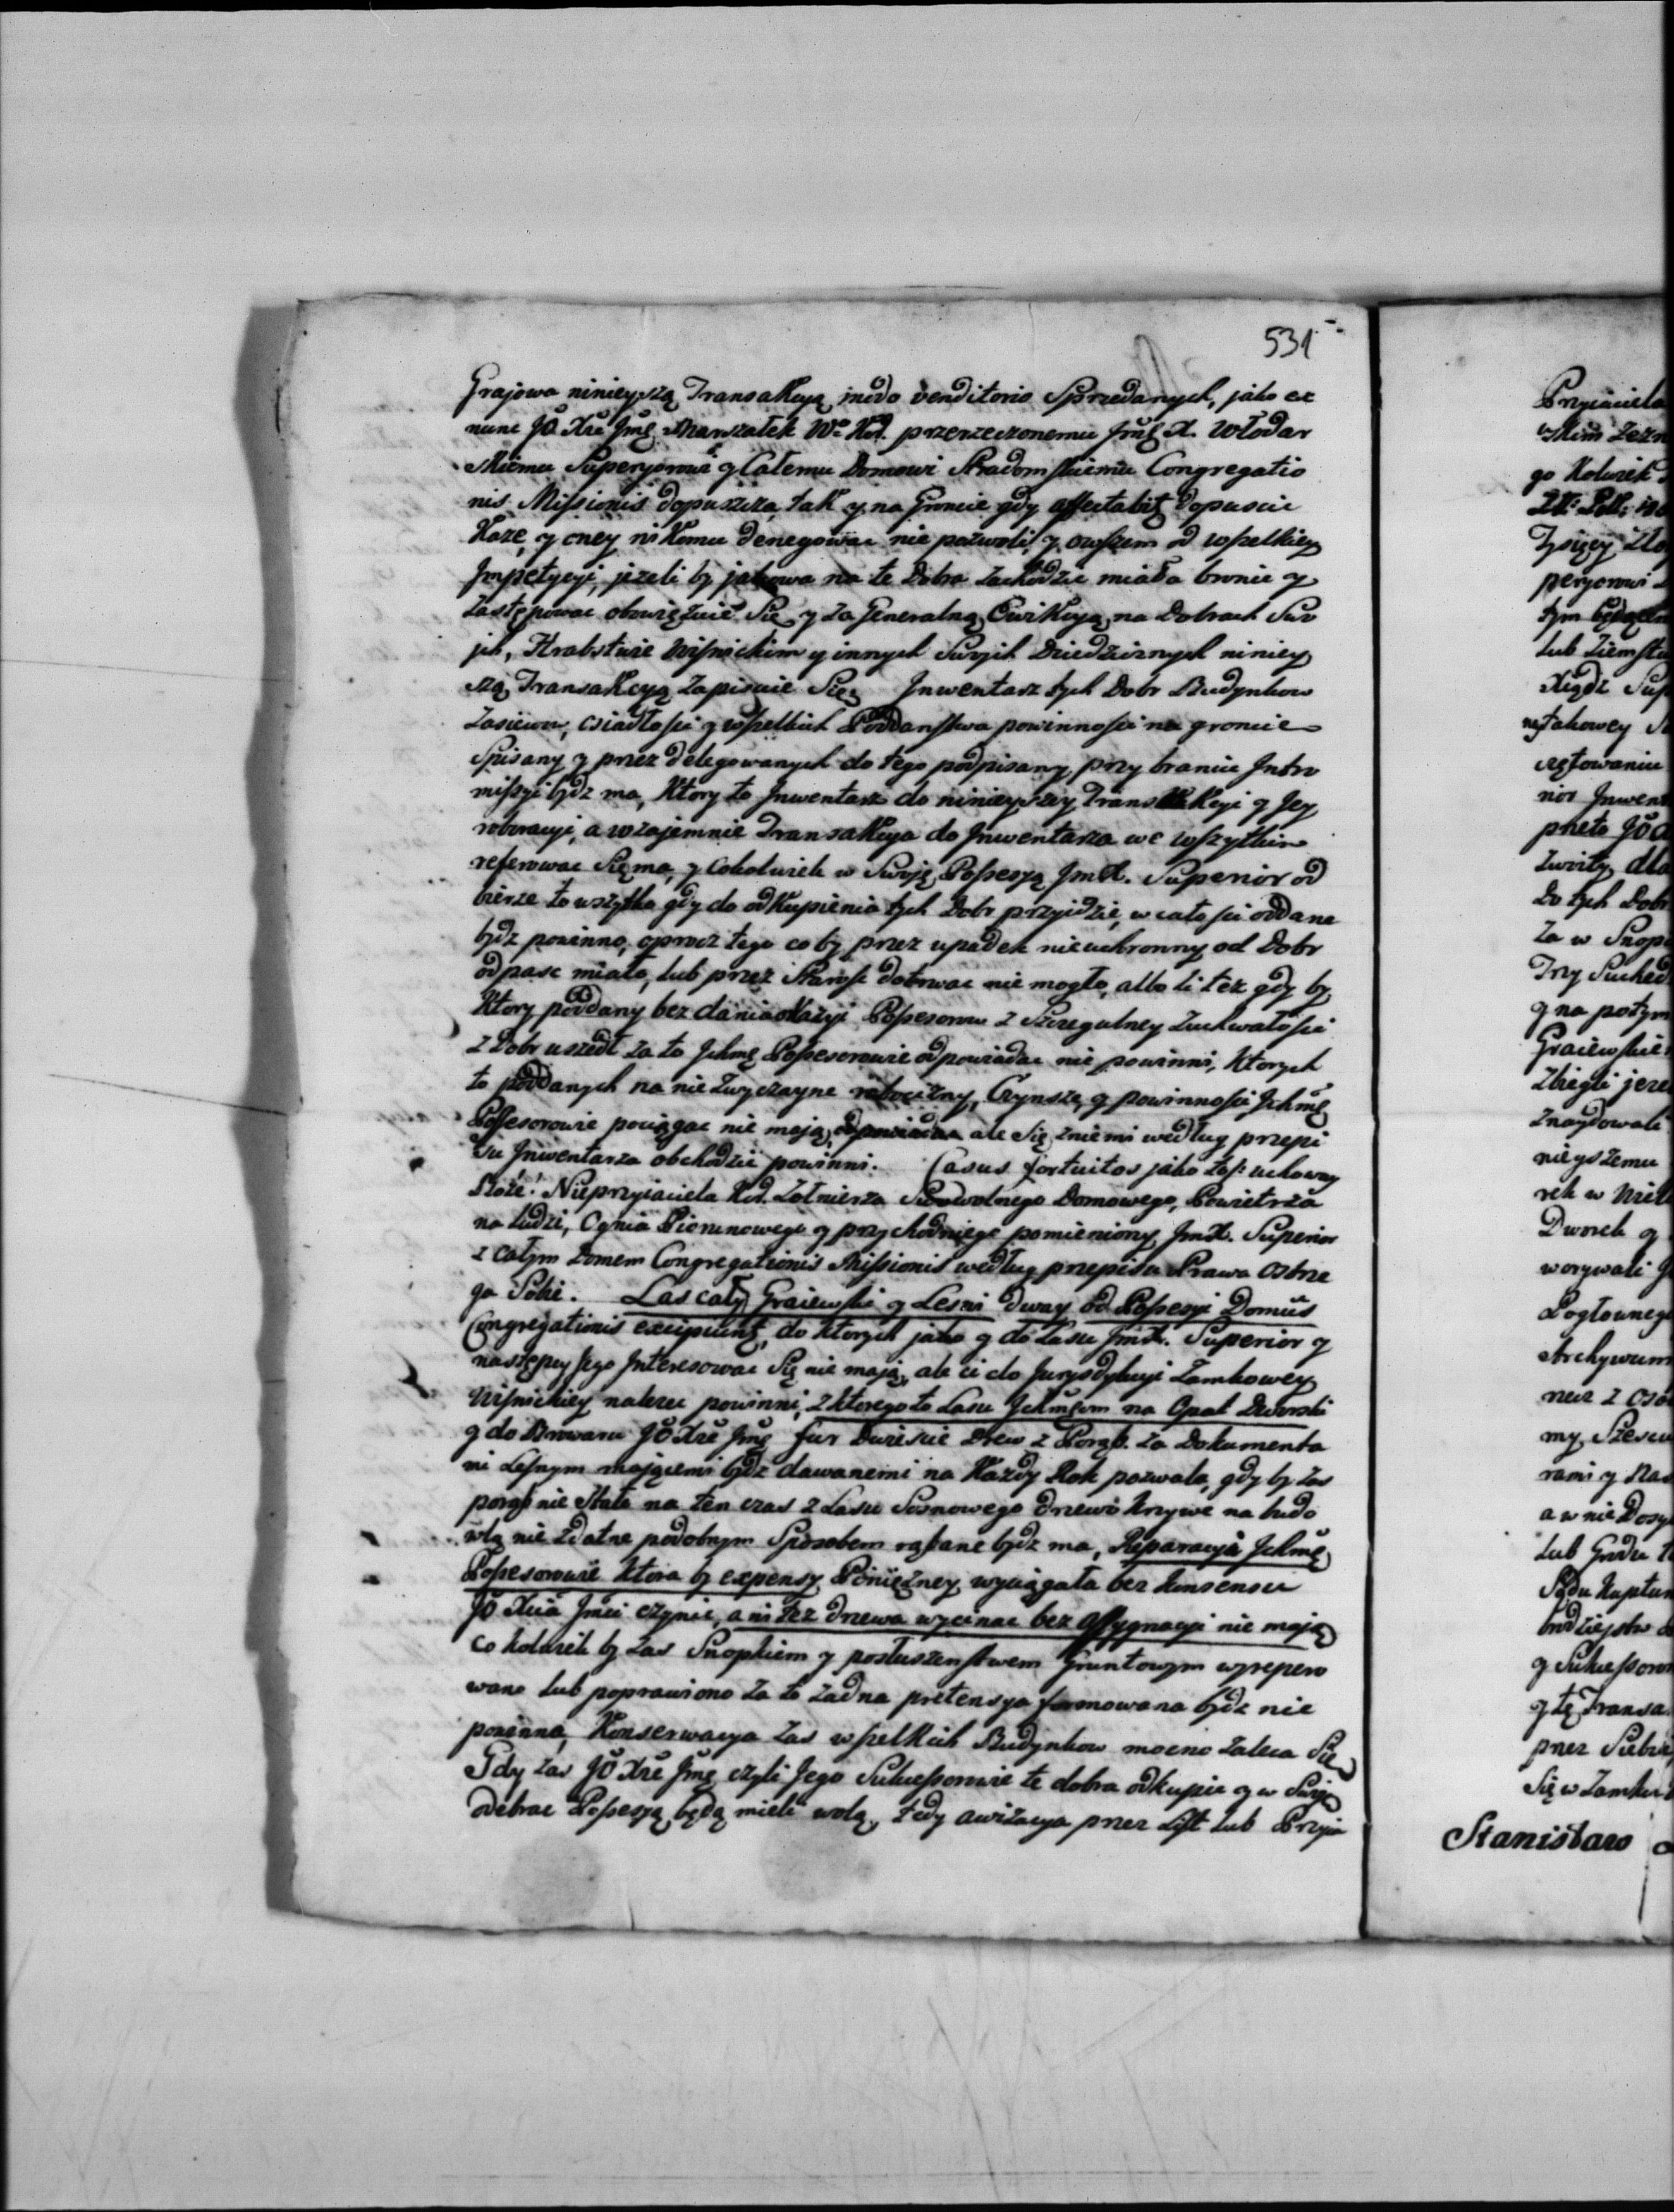 531
Grajowa ninieyszą Transakcyą modo venditorio Sprzedanych, jako ex
nunc JO Xże Jmę Marszałek Wo Kor. przerzeczonemu Jmę X. Włodar
skiemu Superyorowi y Całemu Domowi Stradomskiemu Congregatio
nis Missionis dopuszcza, tak y na Groncie gdy affectabit dopuscic
Kaze, y oney nikomu denegowac nie pozwoli, y owszem od wszelkiey
Jmpetycyi, jezeli by jakowa na te Dobra zachodzic miała bronic y
zastępowac obowięzuie Się y za Generalną Ewikcyą na Dobrach Swo
jch, Hrabstwie Wisnickim y innych Swojch Dziedzicznych niniey
szą Transakcyą zapisuie Się. Jnwentarz tych Dobr Budynkow
Zasiewow, osiadłosci y wszelkich Poddanstwa powinnosci na groncie
Spisany y przez delegowanych do tego podpisany przy braniu Jntro
missyi bydz ma, Ktory to Jnwentarz do ninieyszey Transakcyi y Jey
roboracyi, a wzajemnie Transakcya do Jnwentarza we wszytkim
referowac Się ma, y cokolwiek w Swoję Possesyą JmX. Superior od
bierze to wszytko gdy do odkupienia tych Dobr przyidzie, w całosci oddane
bydz powinno, oprocz tego co by przez upadek nieuchronny od Dobr
odpasc miało, lub przez Starosc dotrwac nie mogło, albo li tez gdy by
Ktory poddany bez dania okazyi Possesorow z Szczegulney zuchwałosci
z Dobr uszedł za to Jchmę Possesorowie odpowiadac nie powinni, Ktorych
to poddanych na niezwyczayne robocizny, Czynsze, y powinnosci Jchmę
Possesorowie pociągac nie mają, ale Się zniemi według przepi
su Jnwentarza obchodzic powinni. Casus fortuitos jako to: uchoway
Boże! Nieprzyiaciela Kor. Zołnierza Swowolnego Domowego, Powietrza
na ludzi, Ognia Piorunowego y przychodniego pomieniony JmX. Superior
z całym Domem Congregationis Missionis według przepisu Prawa ostrze
ga Sobie. Las cały Graiewski y Lesni dway od Possesyi Domus
Congregationis excipiunt, do ktorych jako y do Lasu JmX. Superior y
następcy Jego Jnteresowac Się nie mają, ale ci do Jurysdykcyi Zamkowey
Wisnickiey nalezec powinni, z ktorego to Lasu Jchmęom na Opał Dworski
y do Browaru JO Xże Jmę fur Dwiescie Drew z Porąb. za Dokumenta
mi Lesnym mającemi bydz dawanemi na Kazdy Rok pozwala, gdy by zas
porąb nie Stało na ten czas z Lasu Sosnowego drzewo krzywe na budo
wlą nie zdatne podobnym Sposobem rąbane bydz ma, Reparacyi Jchmę
Possesorowie ktora by expensy Pieniężney wyciągała bez konsensu
JO Xcia Jmci czynic, ani tez drzewa wycinac bez Assygnacyi nie mają
co kolwiek by zas Snopkiem y posłuszenstwem Gruntowym wyrepero
wano lub poprawiono za to zadna pretensya formowana bydz nie
powinna, Konserwacya zas wszelkich Budynkow mocno zaleca Się
Gdy zas JO Xże Jmę czyli Jego Sukcessorowie te dobra odkupic y w Swoję
odebrac Possesyą będą mieli wolą, tedy awizacya przez List lub Przyia
Przyiaciela
go Kolwiek
Tysięcy Zło
peryorowi
tym będące
lub Ziemst
Xiądz Sup
takowey
częstowaniu
nior Jnwent
Do tych Dobr
Za w Snop
Trzy Suched
y na potym
Graiewskie
Zbiegli jeze
Znaydowali
nieyszemu
Dworek y
worywali
Pogłownego
Archywum
a w nie Dosy
lub Grodu
Sądu Kaptur
y Sukcessorow
y tę Transa
przez Siebie
Się w Zamku
Stanisław